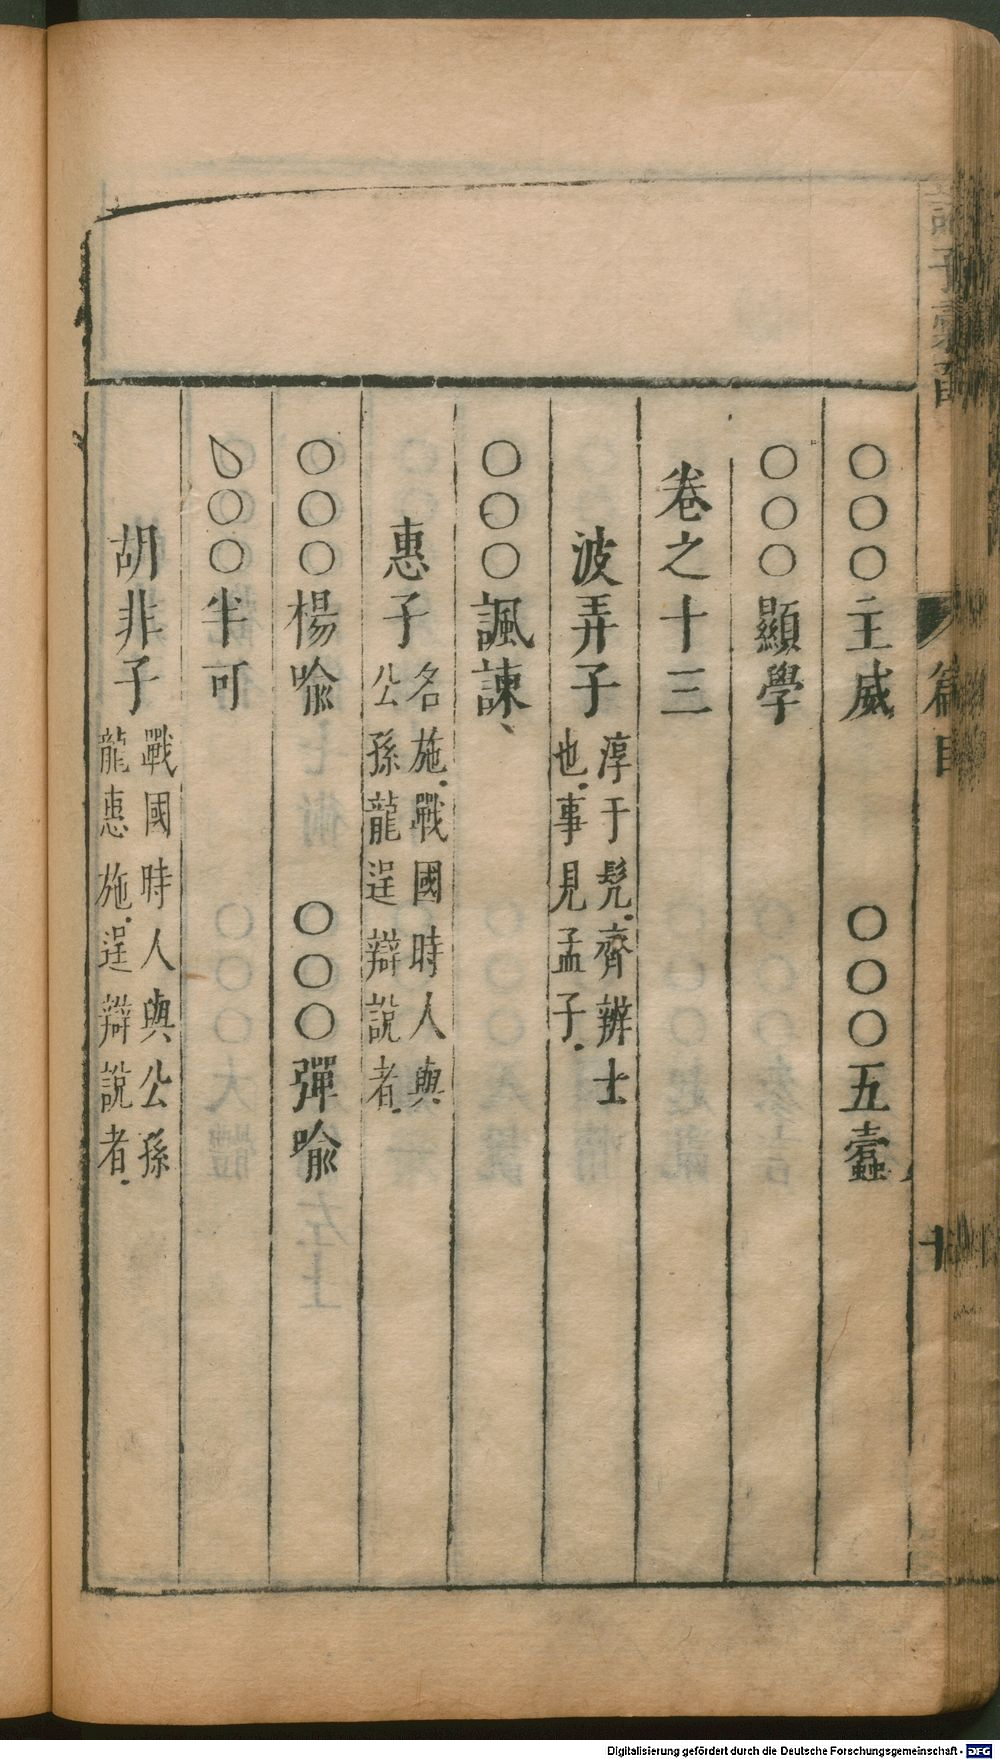 ○○○主威　○○○五蠹
○○○顯學
卷之十三
波弄子　淳于髡齊辨士
也事見孟子
○○○諷諫
惠子　名施戰國時人與
公孫龍逞辯說者
○○○楊喩　○○○彈喩
○○○半可
胡非子　戰國時人與公孫
龍惠施逞辯說者
篇目
十
Digitalisierung gefördert durch die Deutsche Forschungsgemeinschaft - DFG